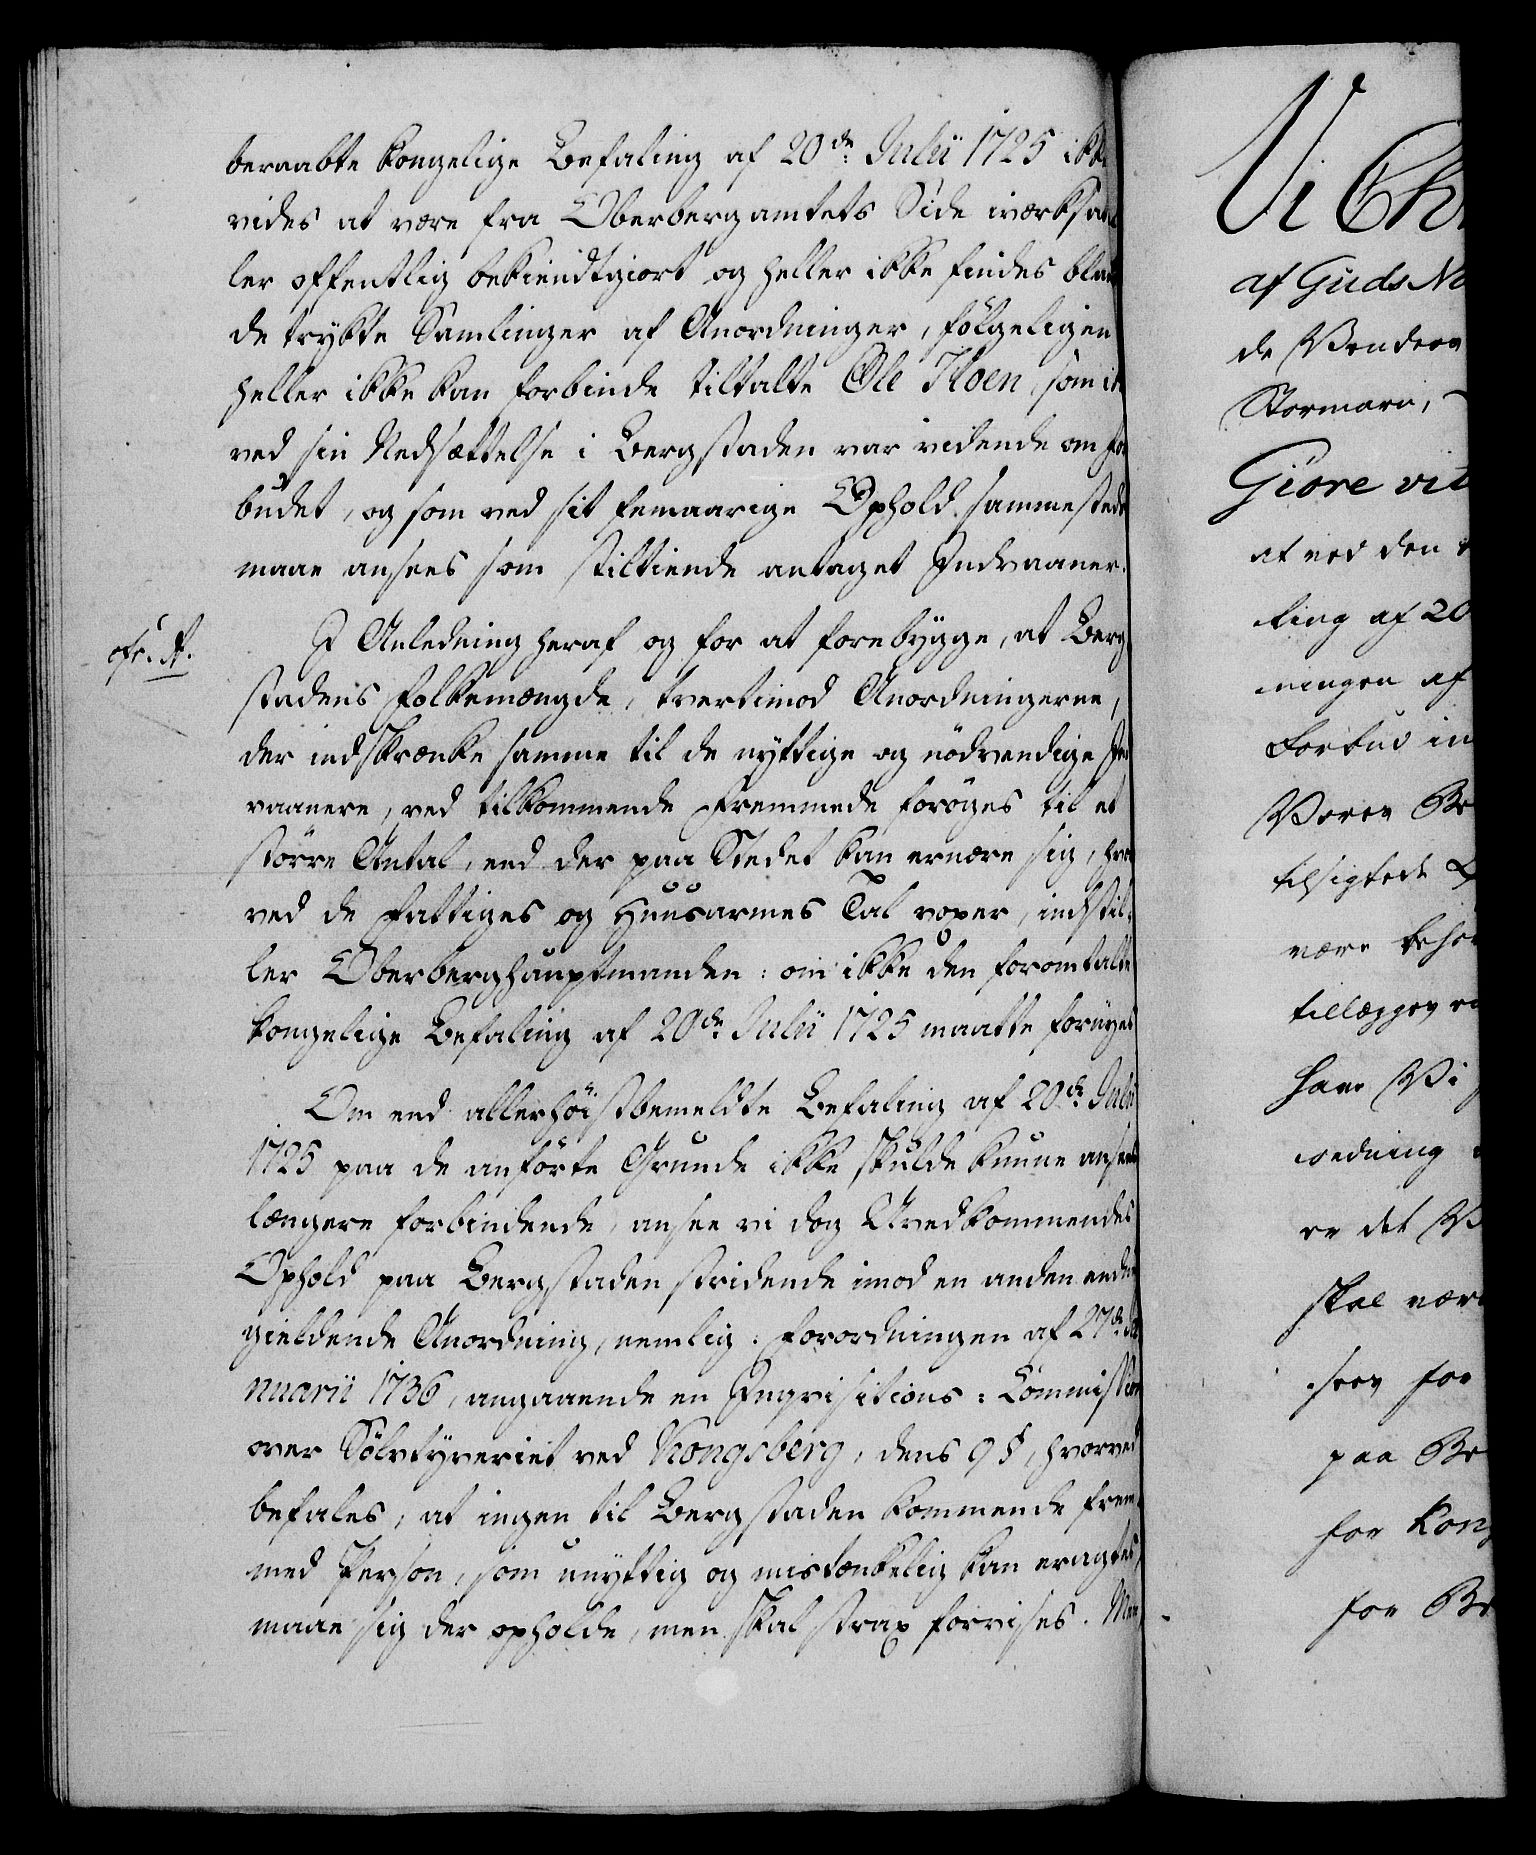 beraabte kongelige Befaling af 20de Julii 1725 ikke
vides at være fra Oberbergamtets Side iværksat
ler offentlig bekiendtgiort og heller ikke findes bla
de trykte Samlinger af Anordninger, følgeligen
heller ikke kan forbinde tiltalte Ole Moen, som i
ved sin Nedsættelse i Bergstaden var vidende om for
budet, og som ved sit femaarige Ophold sammesteds
maae ansees som stiltiende antaget Indvaaner.
cfr. A.
I Anledning heraf og for at forebygge, at Berg
stadens Folkemængde, tvertimod Anordningerne,
der indskrænke samme til de nyttige og nödvendige Ind
vaanere, ved tilkommende Fremmede forøges til et
större Antal, end der paa Stedet kan ernære sig, hvor
ved de Fattiges og Huusarmes Tal voxer, indstil:
ler Oberberghauptmanden: om ikke den foromtalte
kongelige Befaling af 20de Julii 1725 maatte fornyes
Om end allerhöistbemeldte Befaling af 20de Julii
1725 paa de anförte Grunde ikke skulde kunne ansees
længere forbindende, ansee vi dog Uvedkommendes
Ophold paa Bergstaden stridende imod en anden endnu
gieldende Anordning, nemlig: Forordningen af 27de Ja
nuarii 1736, angaaende en Inqvisitions: Commission
over Sölvtyveriet ved Kongsberg, dens 9 §, hvorved
befales, at ingen til Bergstaden kommende frem
med Person, som unyttig og mistænkelig kan eragtes,
maae sig der opholde, men skal strax forvises. Men
Vi Ch
af Guds N
de Venders
Stormarn,
Giöre vit
at ved den
ling af 20
ningen af
Forbud in
Vores Be
tilsigtede
være
tillægges
have Vi
ordning
re det V
skal vær
sees for
paa Be
for Kong
for Be